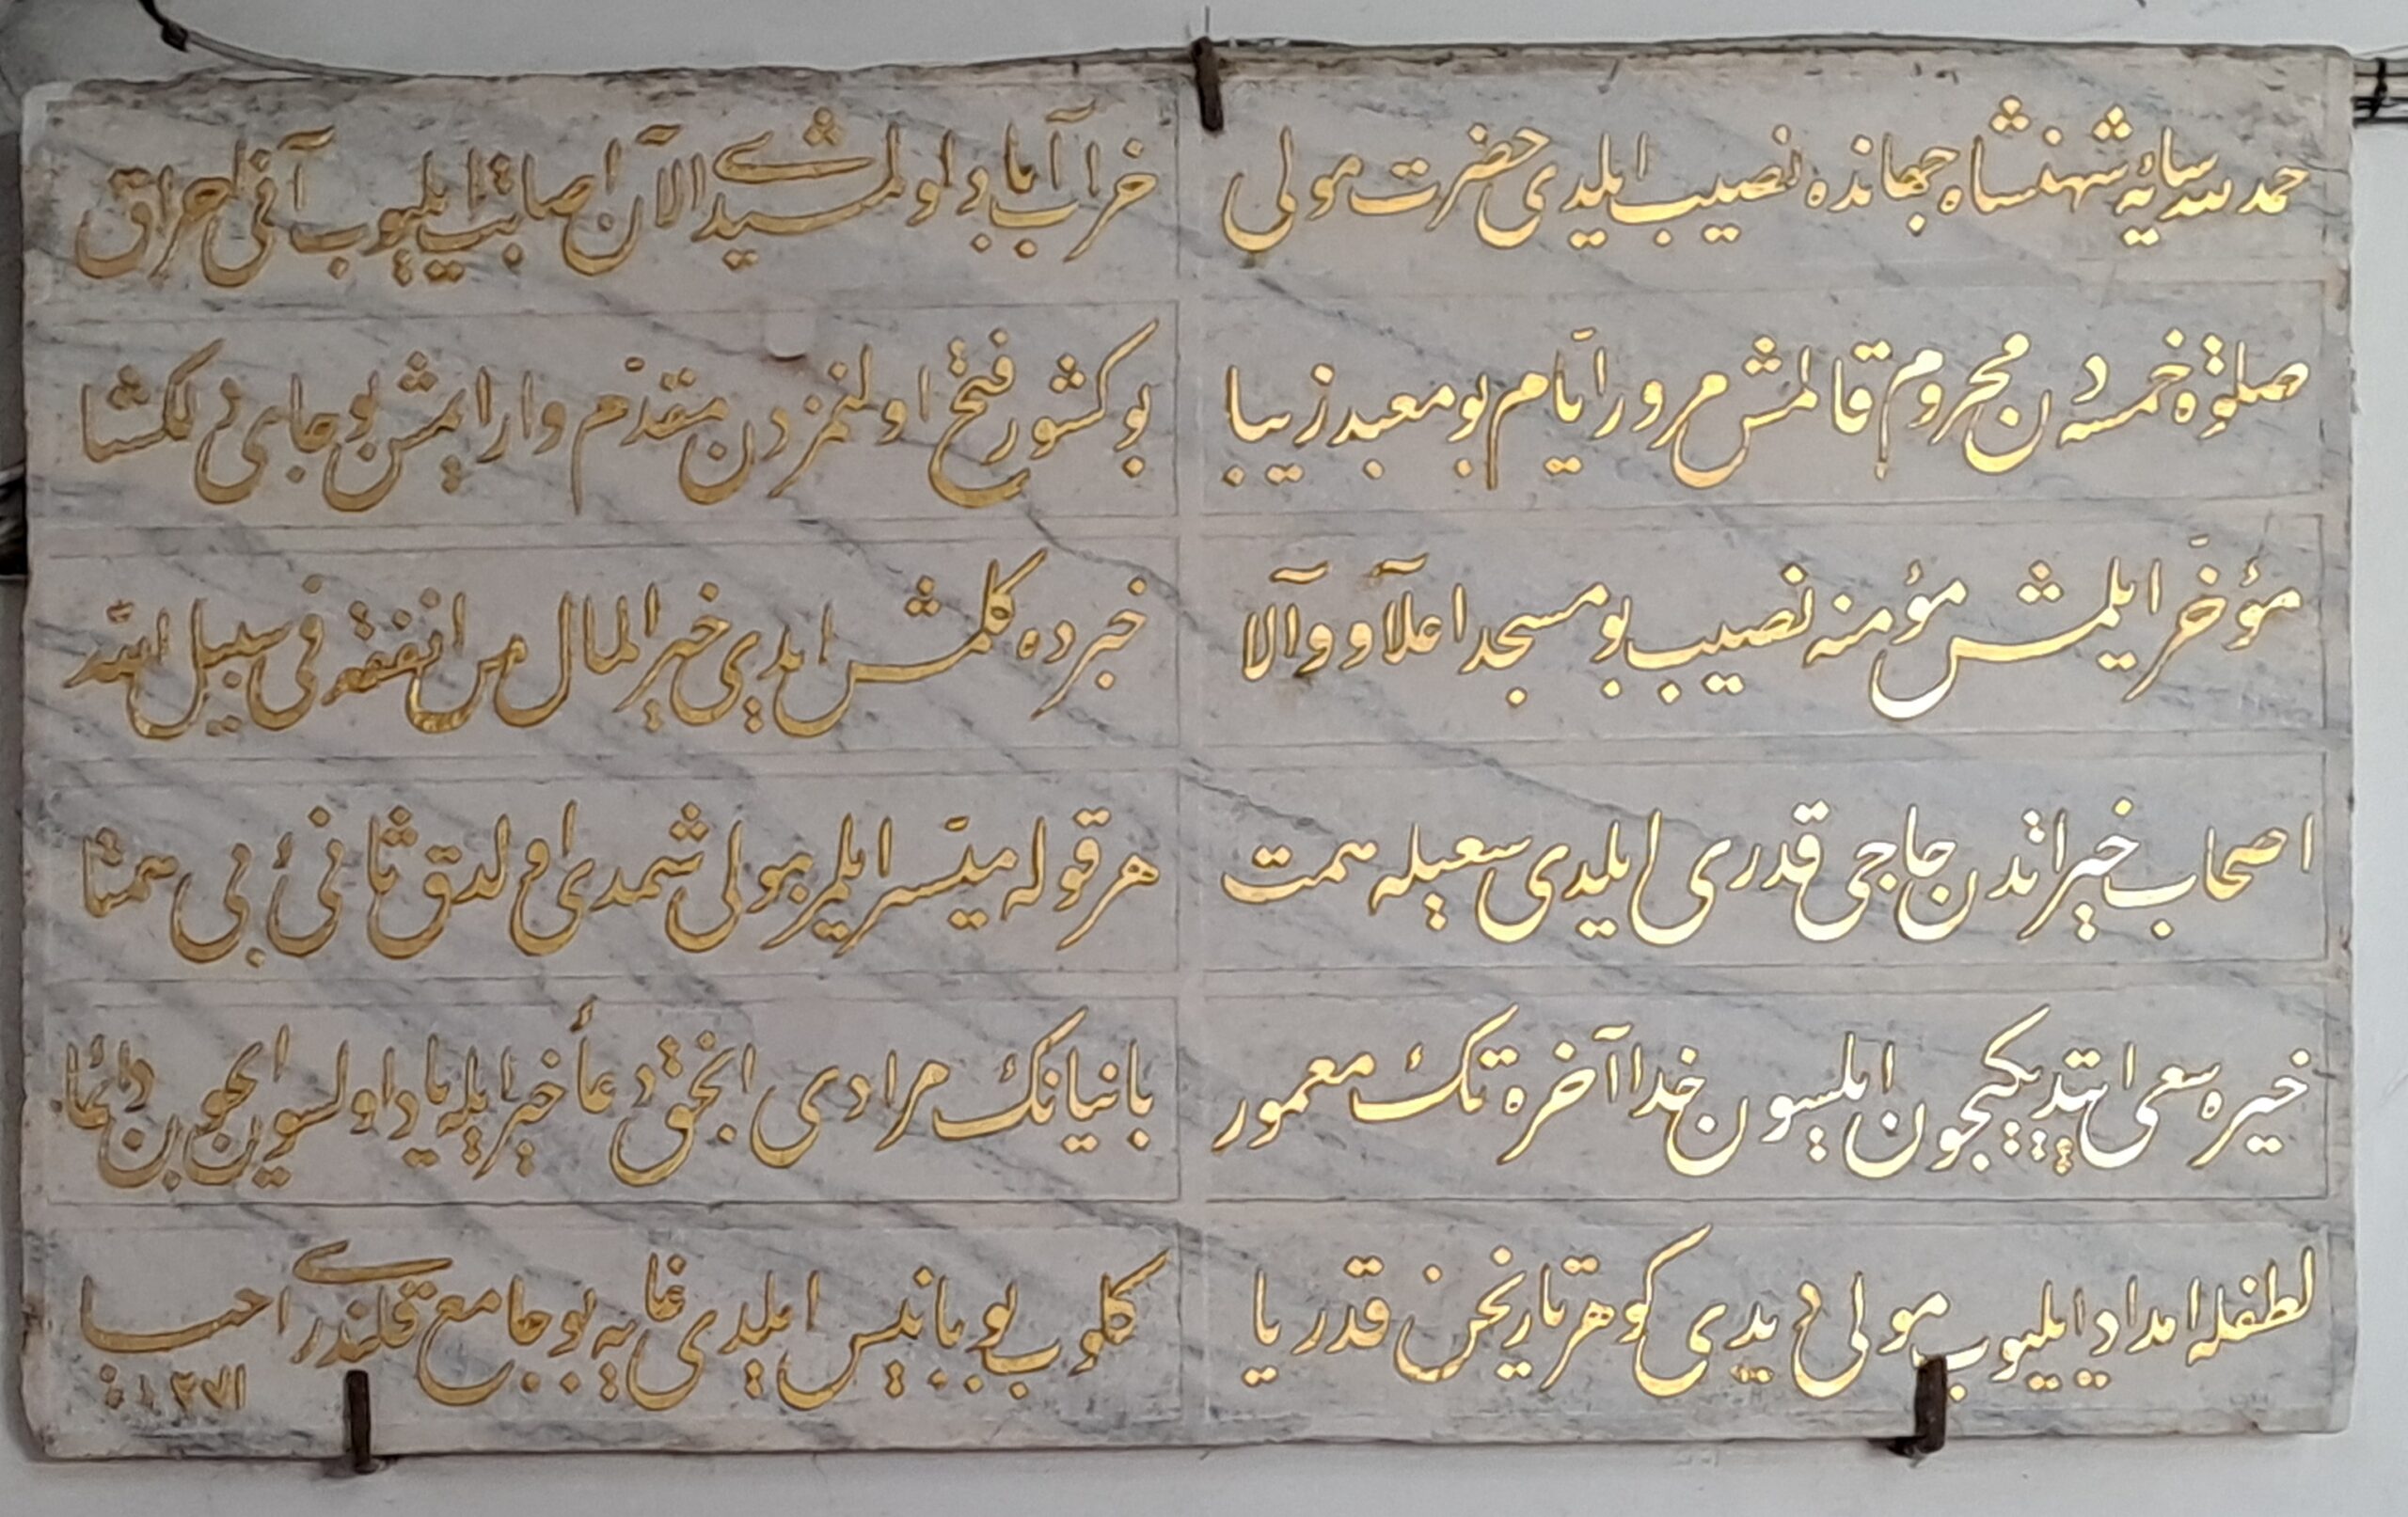 حمد سایهٔ شهنشاه جهانده نصیب ایلدی حضرت مولی
خراب آباد اولمشیدی الآن اصابت ایلیوب آفی احراق
صلوة خمسه دن محروم قالمش مرور ایام بو معبد زیبا
بو کشور فتح اولنمزدن مقدم وارایمش بو جای دلکشا
مؤخر ایلمش مؤمنه نصیب بو مسجد اعلا و والا
خبرده کلمش ایدی خیر المال من انفقه فی سبیل الله
اصحاب خیراتدن حاجی قدری ایلدی سعیله همت
هر قوله میسر ایلمز مولی شمدی اولدق ثانیٔ بی همتا
خیره سعی ایتدیکیچون ایلسون خدا آخرة تک معمور
بانیانک مرادی انجق دعا خیر ایله یاد اولسون ایچون دائما
لطفله امداد ایلیوب مولی دیدی کوهر تاریخن قدریا
کلوب بو بانیس ایلدی غایه بو جامع قلندری احیا
١٢٧١